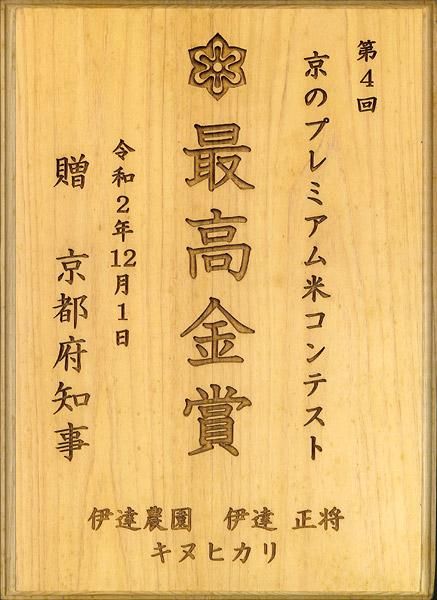 第4回
京のプレミアム米コンテスト
最高金賞
令和2年12月1日
贈 京都府知事
伊達農園 伊達 正将
キヌヒカリ